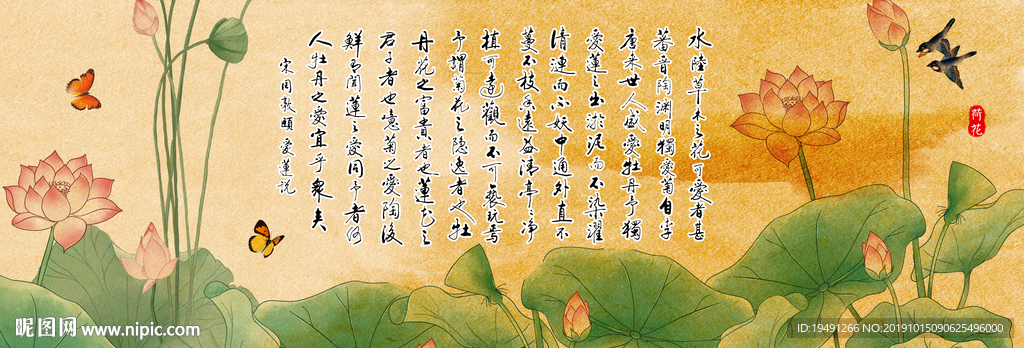 水陸草木之花可愛者甚
蕃晉陶淵明獨愛菊自李
唐來世人盛愛牡丹予獨
愛蓮之出淤泥而不染濯
清漣而不妖中通外直不
蔓不枝香遠益清亭亭淨
植可遠觀而不可褻玩焉
予謂菊花之隱逸者也牡
丹花之富貴者也蓮花之
君子者也噫菊之愛陶後
鮮有聞蓮之愛同予者何
人牡丹之愛宜乎眾矣
宋周敦頤愛蓮說
荷花
昵图网 www.nipic.com
ID:19491266 NO:20191015090625496000